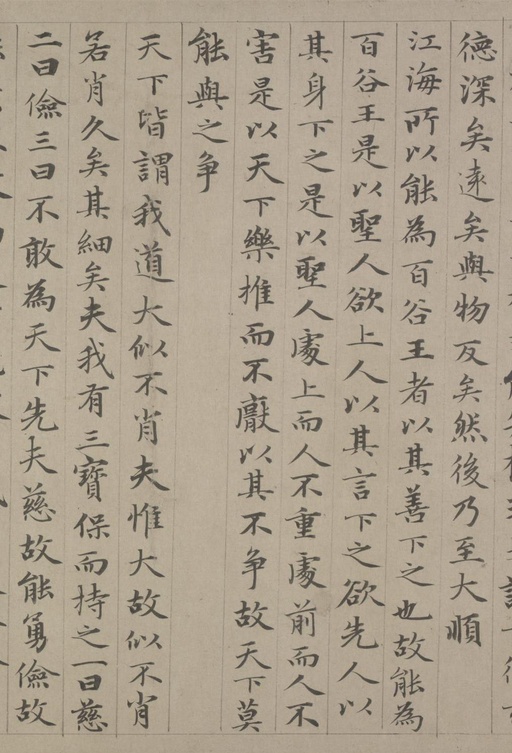 德深矣遠矣與物反矣然後乃至大順
江海所以能為百谷王者以其善下之也故能為
百谷王是以聖人欲上人以其言下之欲先人以
其身下之是以聖人處上而人不重處前而人不
害是以天下樂推而不厭以其不争故天下莫
能與之争
天下皆謂我道大似不肖夫惟大故似不肖
若肖久矣其細矣夫我有三寶保而持之一曰慈
二曰儉三曰不敢為天下先夫慈故能勇儉故